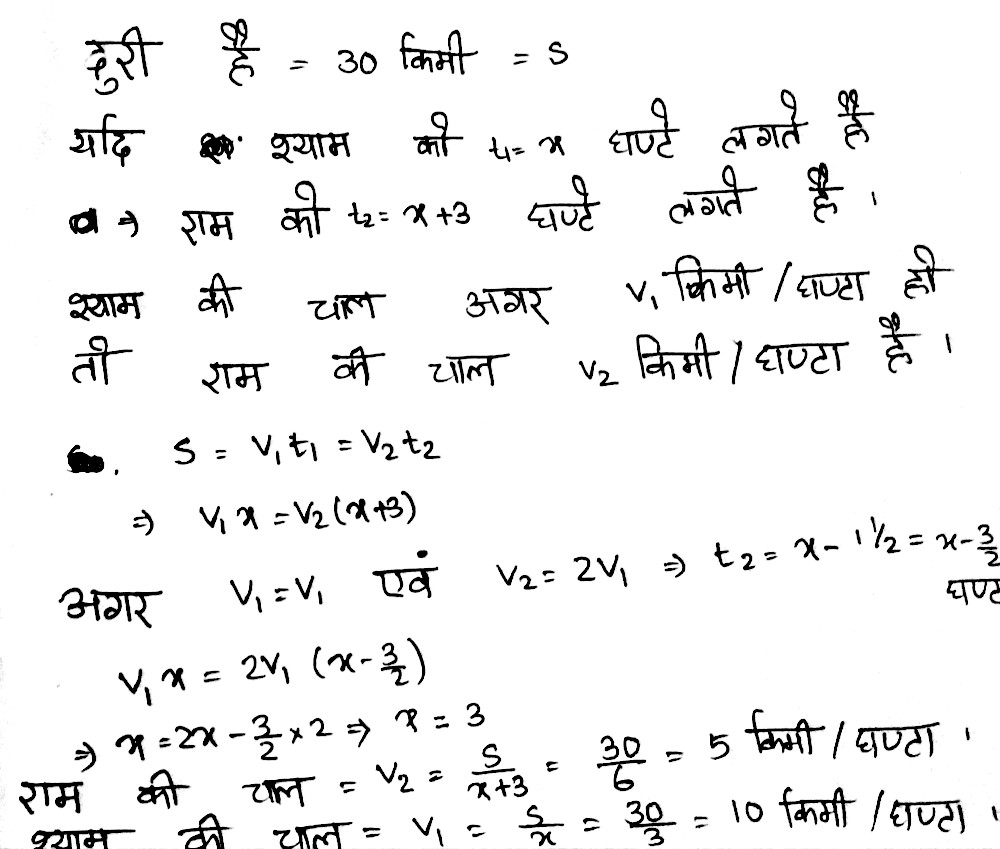 दुरी है = 30 किमी = S
यदि श्याम को t1= x घण्टे लगते है
⇒ राम को t2= x+3 घण्टे लगते है ।
श्याम की चाल अगर V1 किमी / घण्टा हो
तो राम की चाल V2 किमी / घण्टा है ।
S = V1 t1 = V2 t2
⇒ V1 x = V2 (x+3)
अगर V1 = V1 एवं V2 = 2V1 ⇒ t2 = x - 1 1/2 = x - 3/2
V1 x = 2V1 (x - 3/2)
⇒ x = 2x - 3/2 × 2 ⇒ x = 3
राम की चाल = V2 = S/x+3 = 30/6 = 5 किमी / घण्टा ।
श्याम की चाल = V1 = S/x = 30/3 = 10 किमी / घण्टा ।